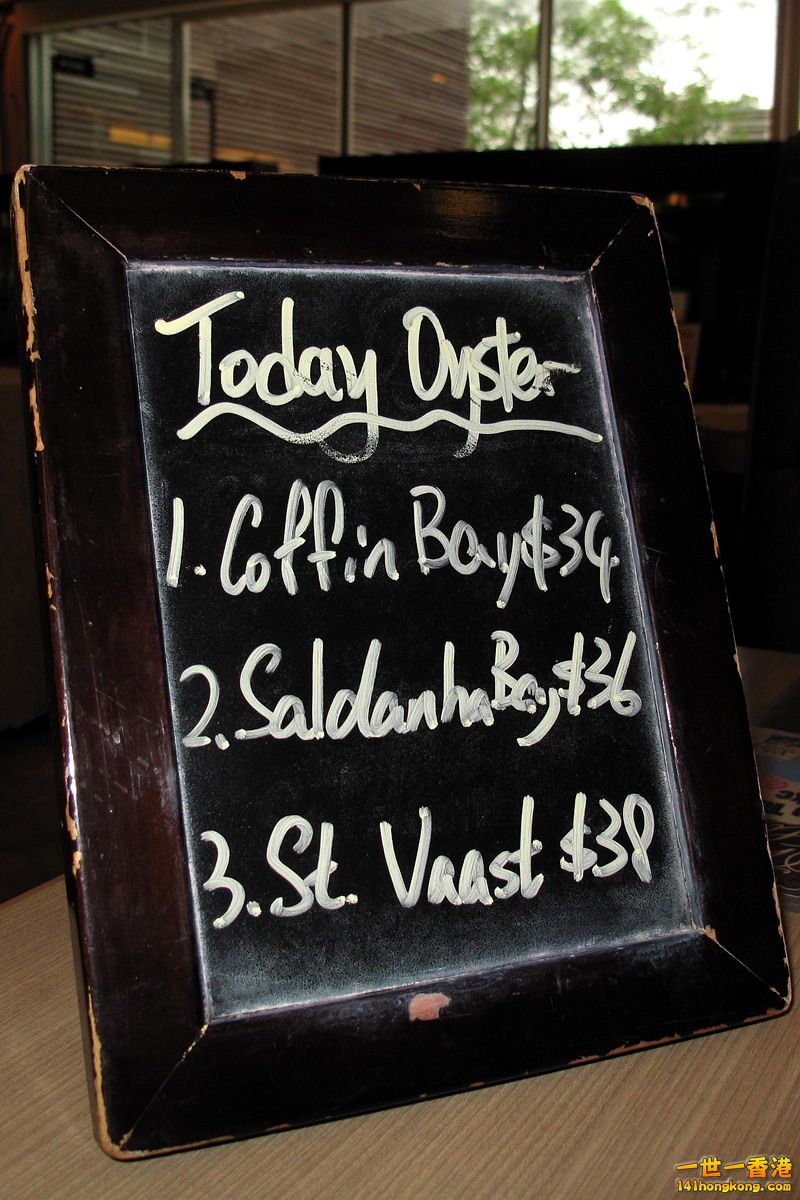 Today Oyster
1. Coffin Bay $34
2. Saldanha Bay $36
3. St. Vaast $38
一世一香港
141hongkong.com